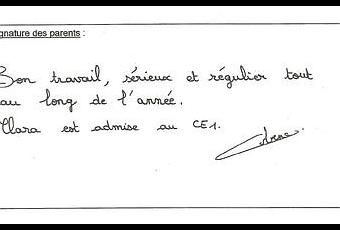 gnature des parents :
Bon travail, sérieux et régulier tout
au long de l'année.
Clara est admise au CE1.